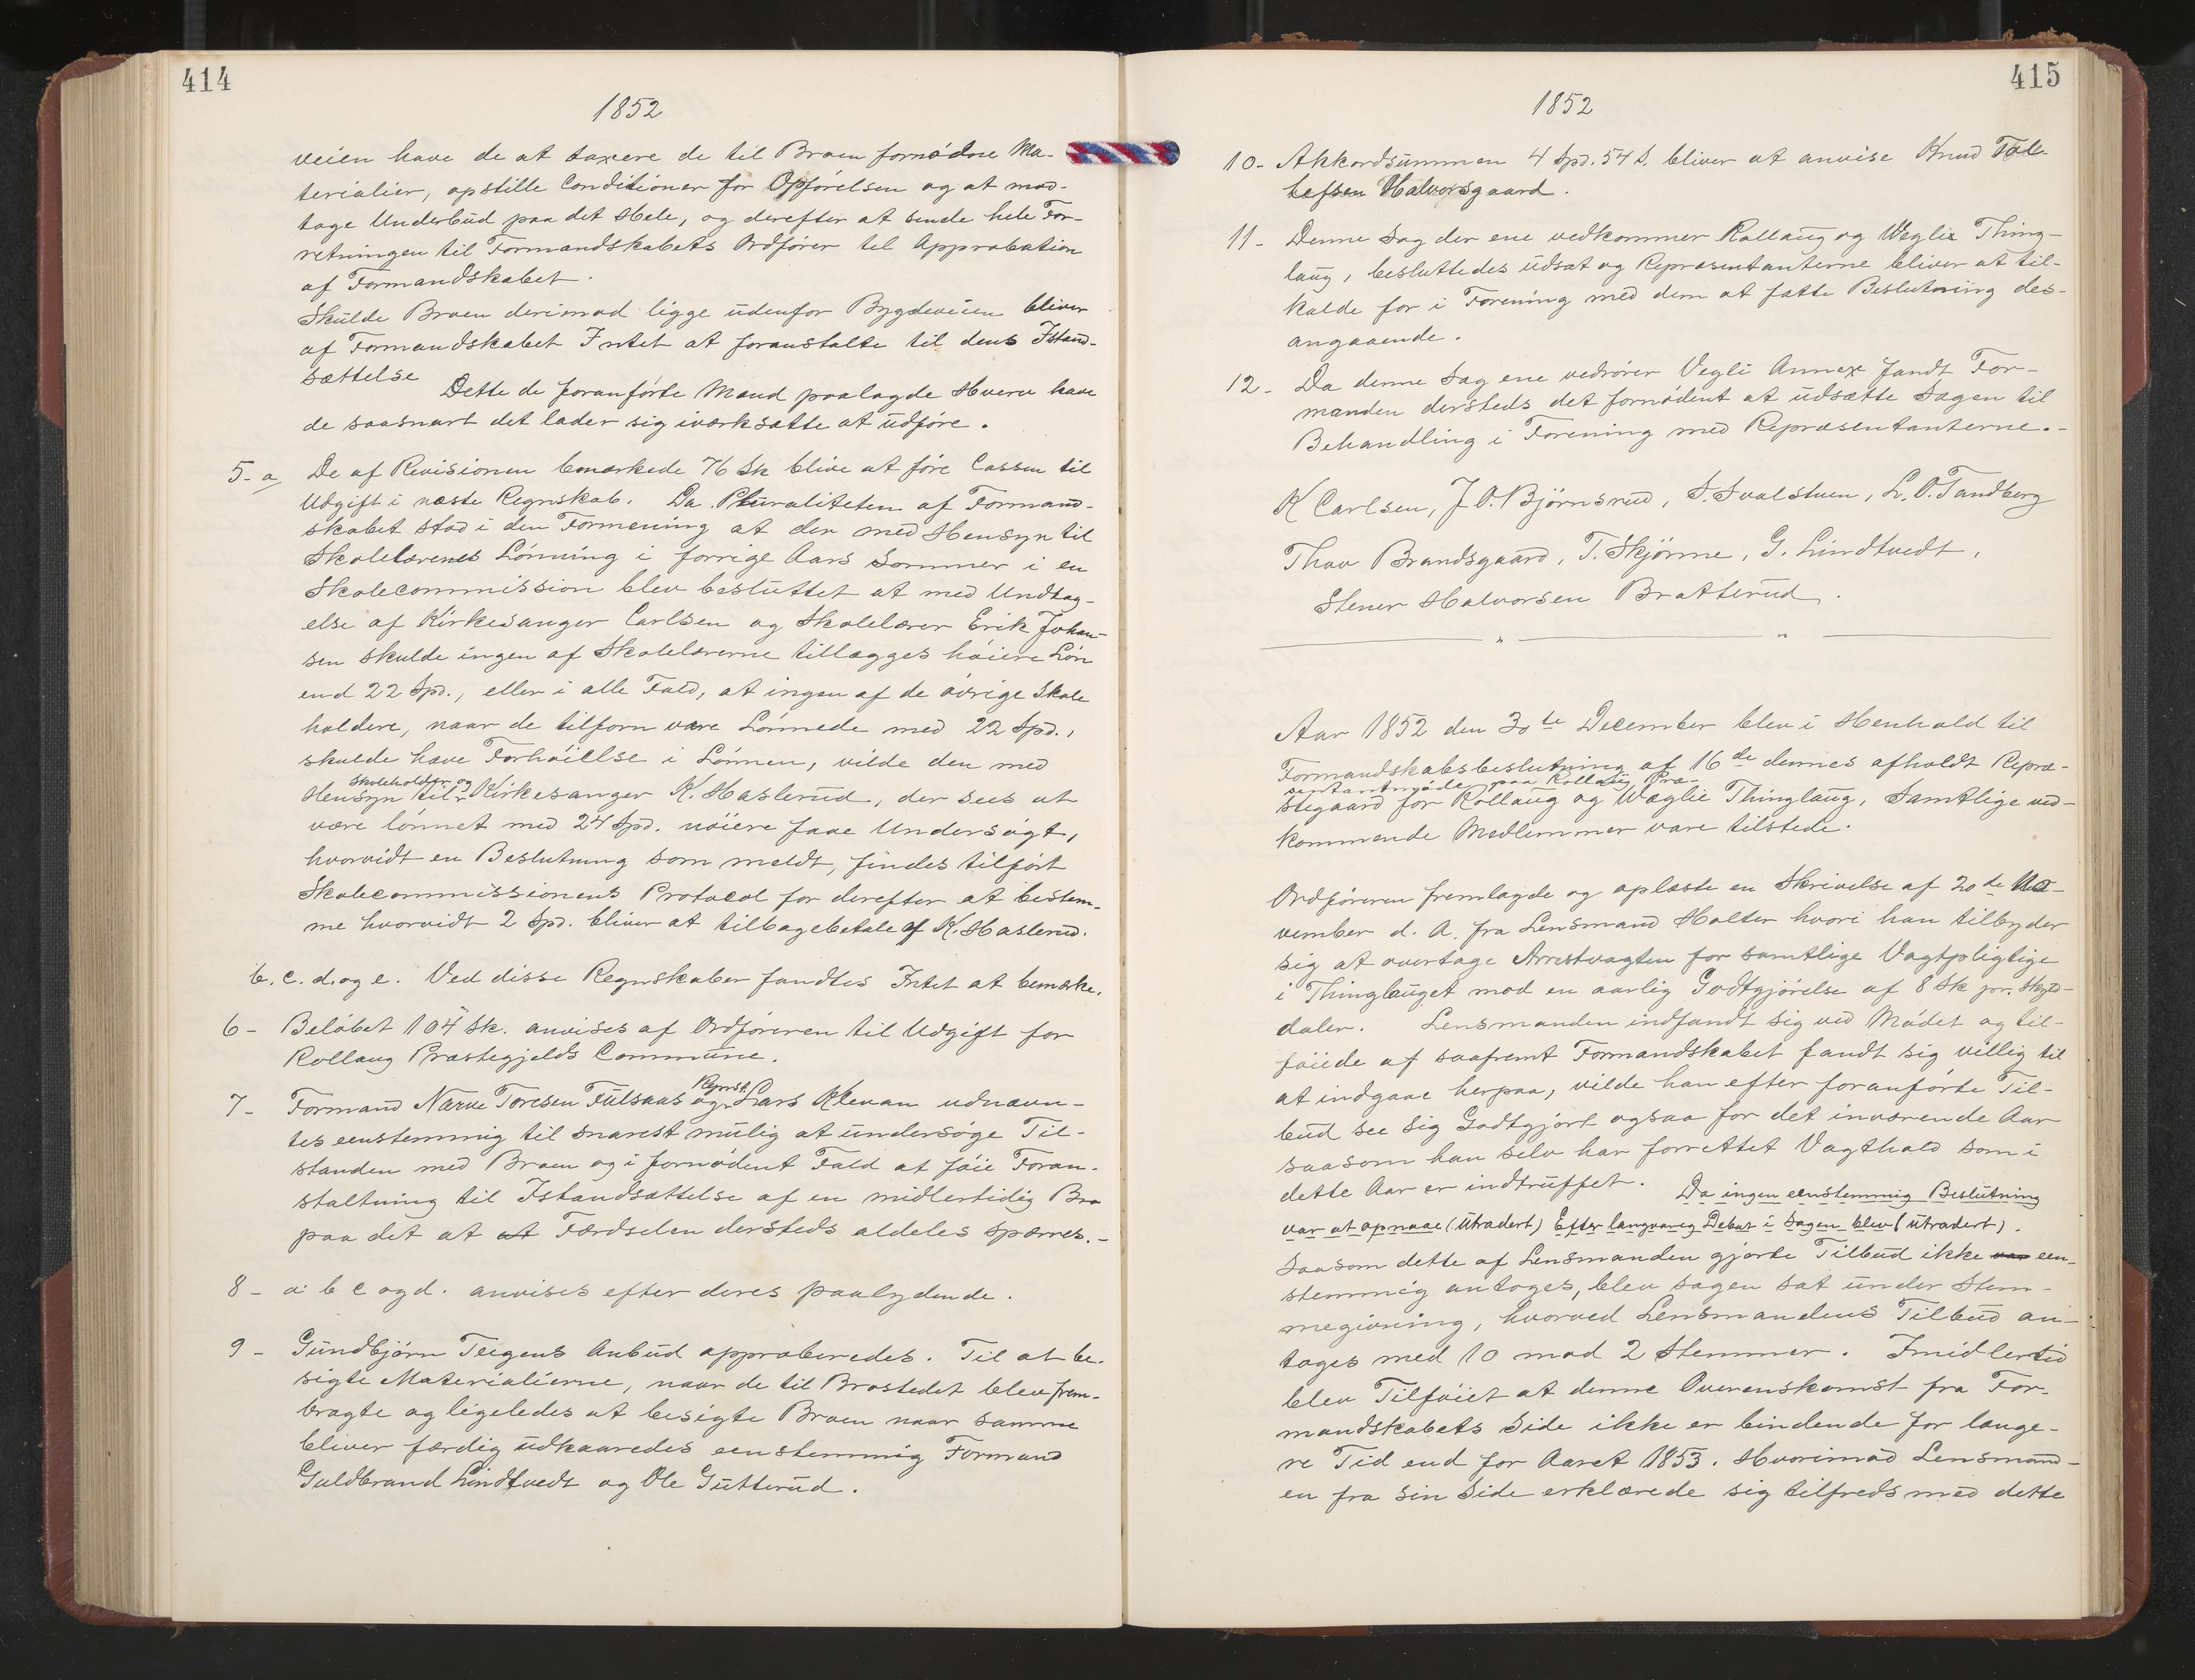 414
1852
veien have de at taxere de til Broen fornødne Ma-
terialier, opstille Conditioner for Opførelsen og at mod-
tage Underbud paa det Hele, og derefter at sende hele For-
retningen til Formandskabets Ordfører til Approbation
af Formandskabet.
Skulde Broen derimod ligge udenfor Bygdeveien bliver
af Formandskabet Intet at foranstalte til dens Istand-
sættelse
Dette de foranførte Mænd paalagde Hverv have
de saasnart det lader sig iværksætte at udføre.
5- a, De af Revisionen bemærkede 76 Sk blive at føre Cassen til
Udgift i næste Regnskab. Da Pluraliteten af Formand-
skabet stod i den Formening at der med Hensyn til
Skolelærenes Lønning i forrige Aars Sommer i en
Skolecommission blev besluttet at med Undtag-
else af Kirkesanger Carlsen og Skolelærer Erik Johan-
sen skulde ingen af Skolelærerne tillægges høiere Løn
end 22 Spd., eller i alle Fald, at ingen af de øvrige Skole
holdere, naar de tilforn vare Lønnede med 22 Spd.,
skulde have Forhøillse i Lønnen, vilde den med
Hensyn til Skoleholder og Kirkesanger K. Haslerud, der sees at
være lønnet med 24 Spd. nøiere faae Undersøgt,
hvorvidt en Beslutning som meldt, findes tilført
Skolecommissionens Protocol for derefter at bestem-
me hvorvidt 2 Spd. bliver at tilbagebetale af K. Haslerud.
b. c. d. og e. Ved disse Regnskaber fandtes Intet at bemærke.
6 - Beløbet 104 Sk. anvises af Ordføreren til Udgift for
Rollaug Præstegjelds Commune.
7 - Formand Narve Toresen Fulsaas og Rpnst. Lars Klevan udnævn-
tes eenstemmig til snarest mulig at undersøge Til-
standen med Broen og i fornødent Fald at føie Foran-
staltning til Istandsættelse af en midlertidig Bro
paa det at at Færdselen dersteds aldeles spærres.-
8 - a: b c og d. anvises efter deres paalydende.
9 - Gundbjørn Teigens Anbud approberedes. Til at be-
sigte Materialierne, naar de til Brostedet blev frem-
bragte og ligeledes at besigte Broen naar samme
bliver færdig udkaaredes eenstemmig Formand
Guldbrand Lindtvedt og Ole Gutterud.
415
1852
10- Akkordsummen 4 Spd. 54 s. bliver at anvise Knud Tol-
lefsen Halvorsgaard.
11 - Denne Sag der ene vedkommer Rollaug og Weglie Thing-
laug, besluttedes udsat og Repræsentanterne bliver at til-
kalde for i Forening med dem at fatte Beslutning des-
angaaende.
12 - Da denne Sag ene vedrører Vegli Annex fandt For-
manden dersteds det fornødent at udsætte Sagen til
Behandling i Forening med Repræsentanterne.-
K Carlsen, J. O. Bjørnsrud, S. Svalstuen, L. O. Tandberg
Thov Brandsgaard, T. Skjønne, G. Lindtvedt,
Stener Halvorsen Bratterud.
Aar 1852 den 30te December blev i Henhold til
Formandskabsbeslutning af 16de dennes afholdt Repræ-
sentantmøde paa Rollaug Præ-
stegaard for Rollaug og Wæglie Thinglaug, Samtlige ved-
kommende Medlemmer vare tilstede.
Ordføreren fremlagde og oplæste en Skrivelse af 20de No-
vember d. A. fra Lensmand Holter hvori han tilbyder
sig at overtage Arrestvagten for samtlige Vagtpligtige
i Thinglauget mod en aarlig Godtgjørelse af 8 Sk pr. Skyld-
daler. Lensmanden indfandt sig ved Mødet og til-
føiede af saafremt Formandskabet fandt sig villig til
at indgaae herpaa, vilde han efter foranførte Til-
bud see sig Godtgjort ogsaa for det inværende Aar
saasom han selv har forrettet Vagthold som i
dette Aar er indtruffet. Da ingen eenstemmig Beslutning
var at opnaae (utradert) Efter langvarig Debat i Sagen blev (utradert).
Saasom dette af Lensmanden gjorte Tilbud ikke var een-
stemmig antoges, blev sagen sat under Stem-
megivning, hvorved Lensmandens Tilbud an-
toges med 10 mod 2 Stemmer. Imidlertid
blev Tilføiet at denne Overenskomst fra For-
mandskabets Side ikke er bindende for længe-
re Tid end for Aaret 1853. Hvorimod Lensmand-
en fra sin Side erklærede sig tilfreds med dette